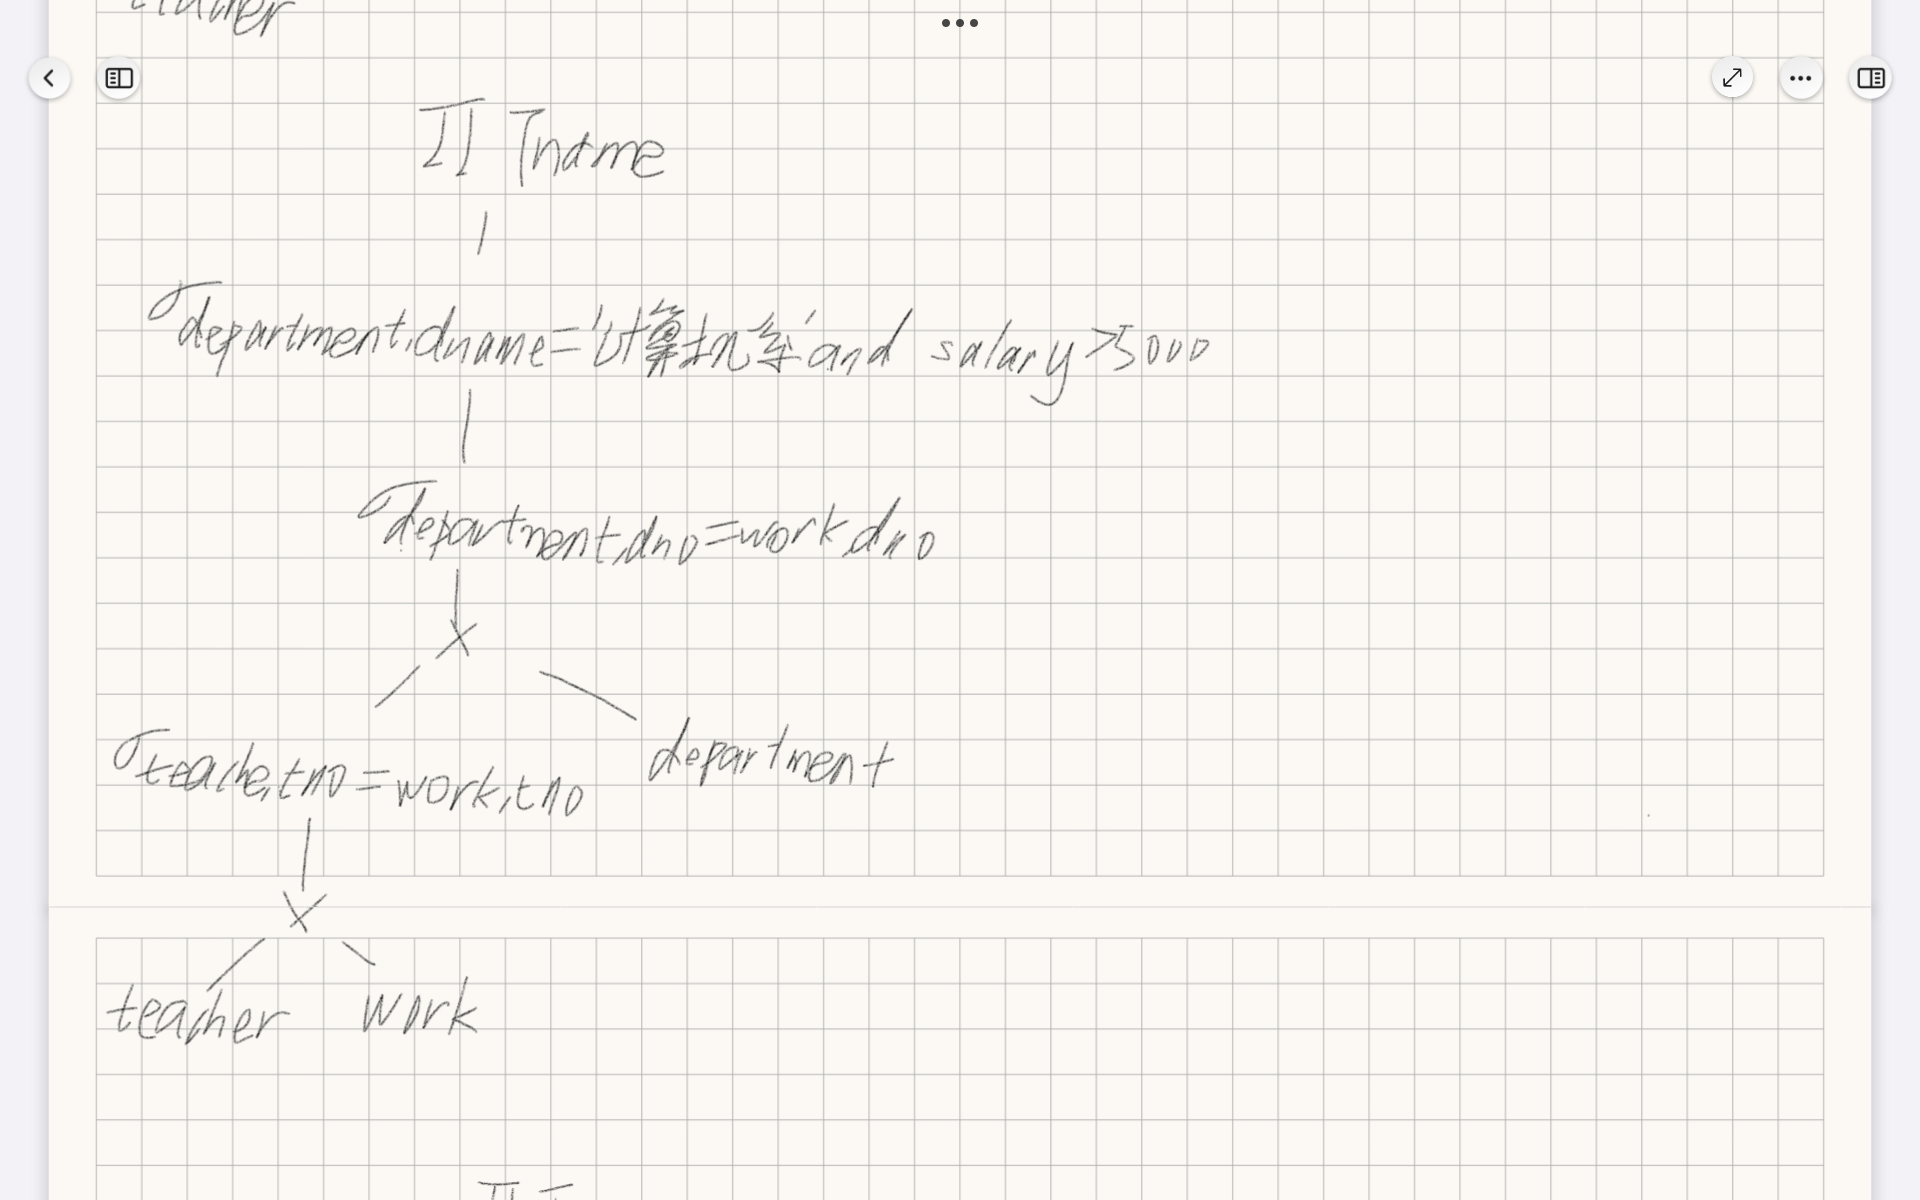 teacher
Π Tname
σdepartment.dname='计算机系'and salary>5000
σdepartment.dno=work.dno
×
σteache.tno=work.tno
department
×
teacher work
Π T